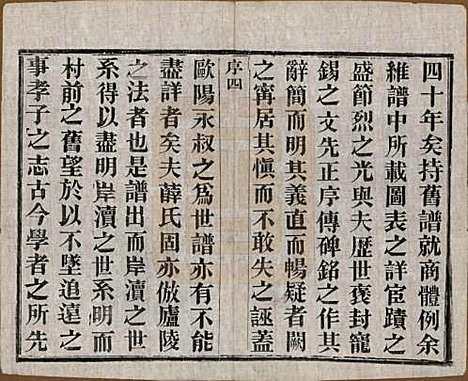 四十年矣持舊譜就商體例余
維譜中所載圖表之詳宦蹟之
盛節烈之光與夫歷世褒封寵
錫之文先正序傳碑銘之作其
辭簡而明其義直而暢疑者闕
之甯居其愼而不敢失之誣蓋
序四
歐陽永叔之爲世譜亦有不能
盡詳者矣夫薛氏固亦倣廬陵
之法者也是譜出而岸瀆之世
系得以盡明岸瀆之世系明而
村前之舊望於以不墜追遠之
事孝子之志古今學者之所先